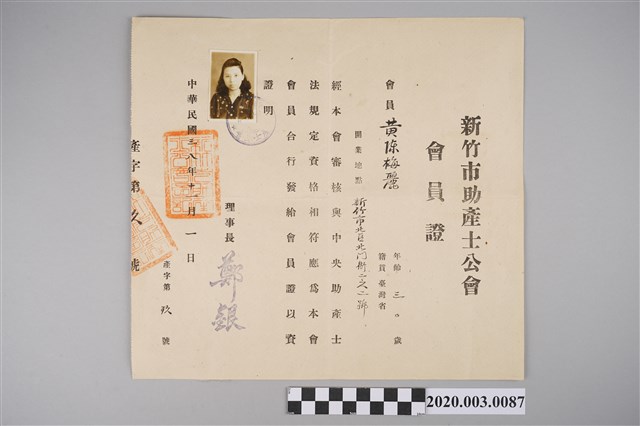 新竹市助產士公會
會員證
會員 黃陳梅麗
年齡 三〇歲
籍貫 臺灣省
開業地點 新竹市北區北門街二之二號
經本會審核與中央助產士
法規定資格相符應為本會
會員合行發給會員證以資
證明
理事長 鄭銀
中華民國三八年十一月一日
產字第 玖 號
產字第 久 號
2020.003.0087